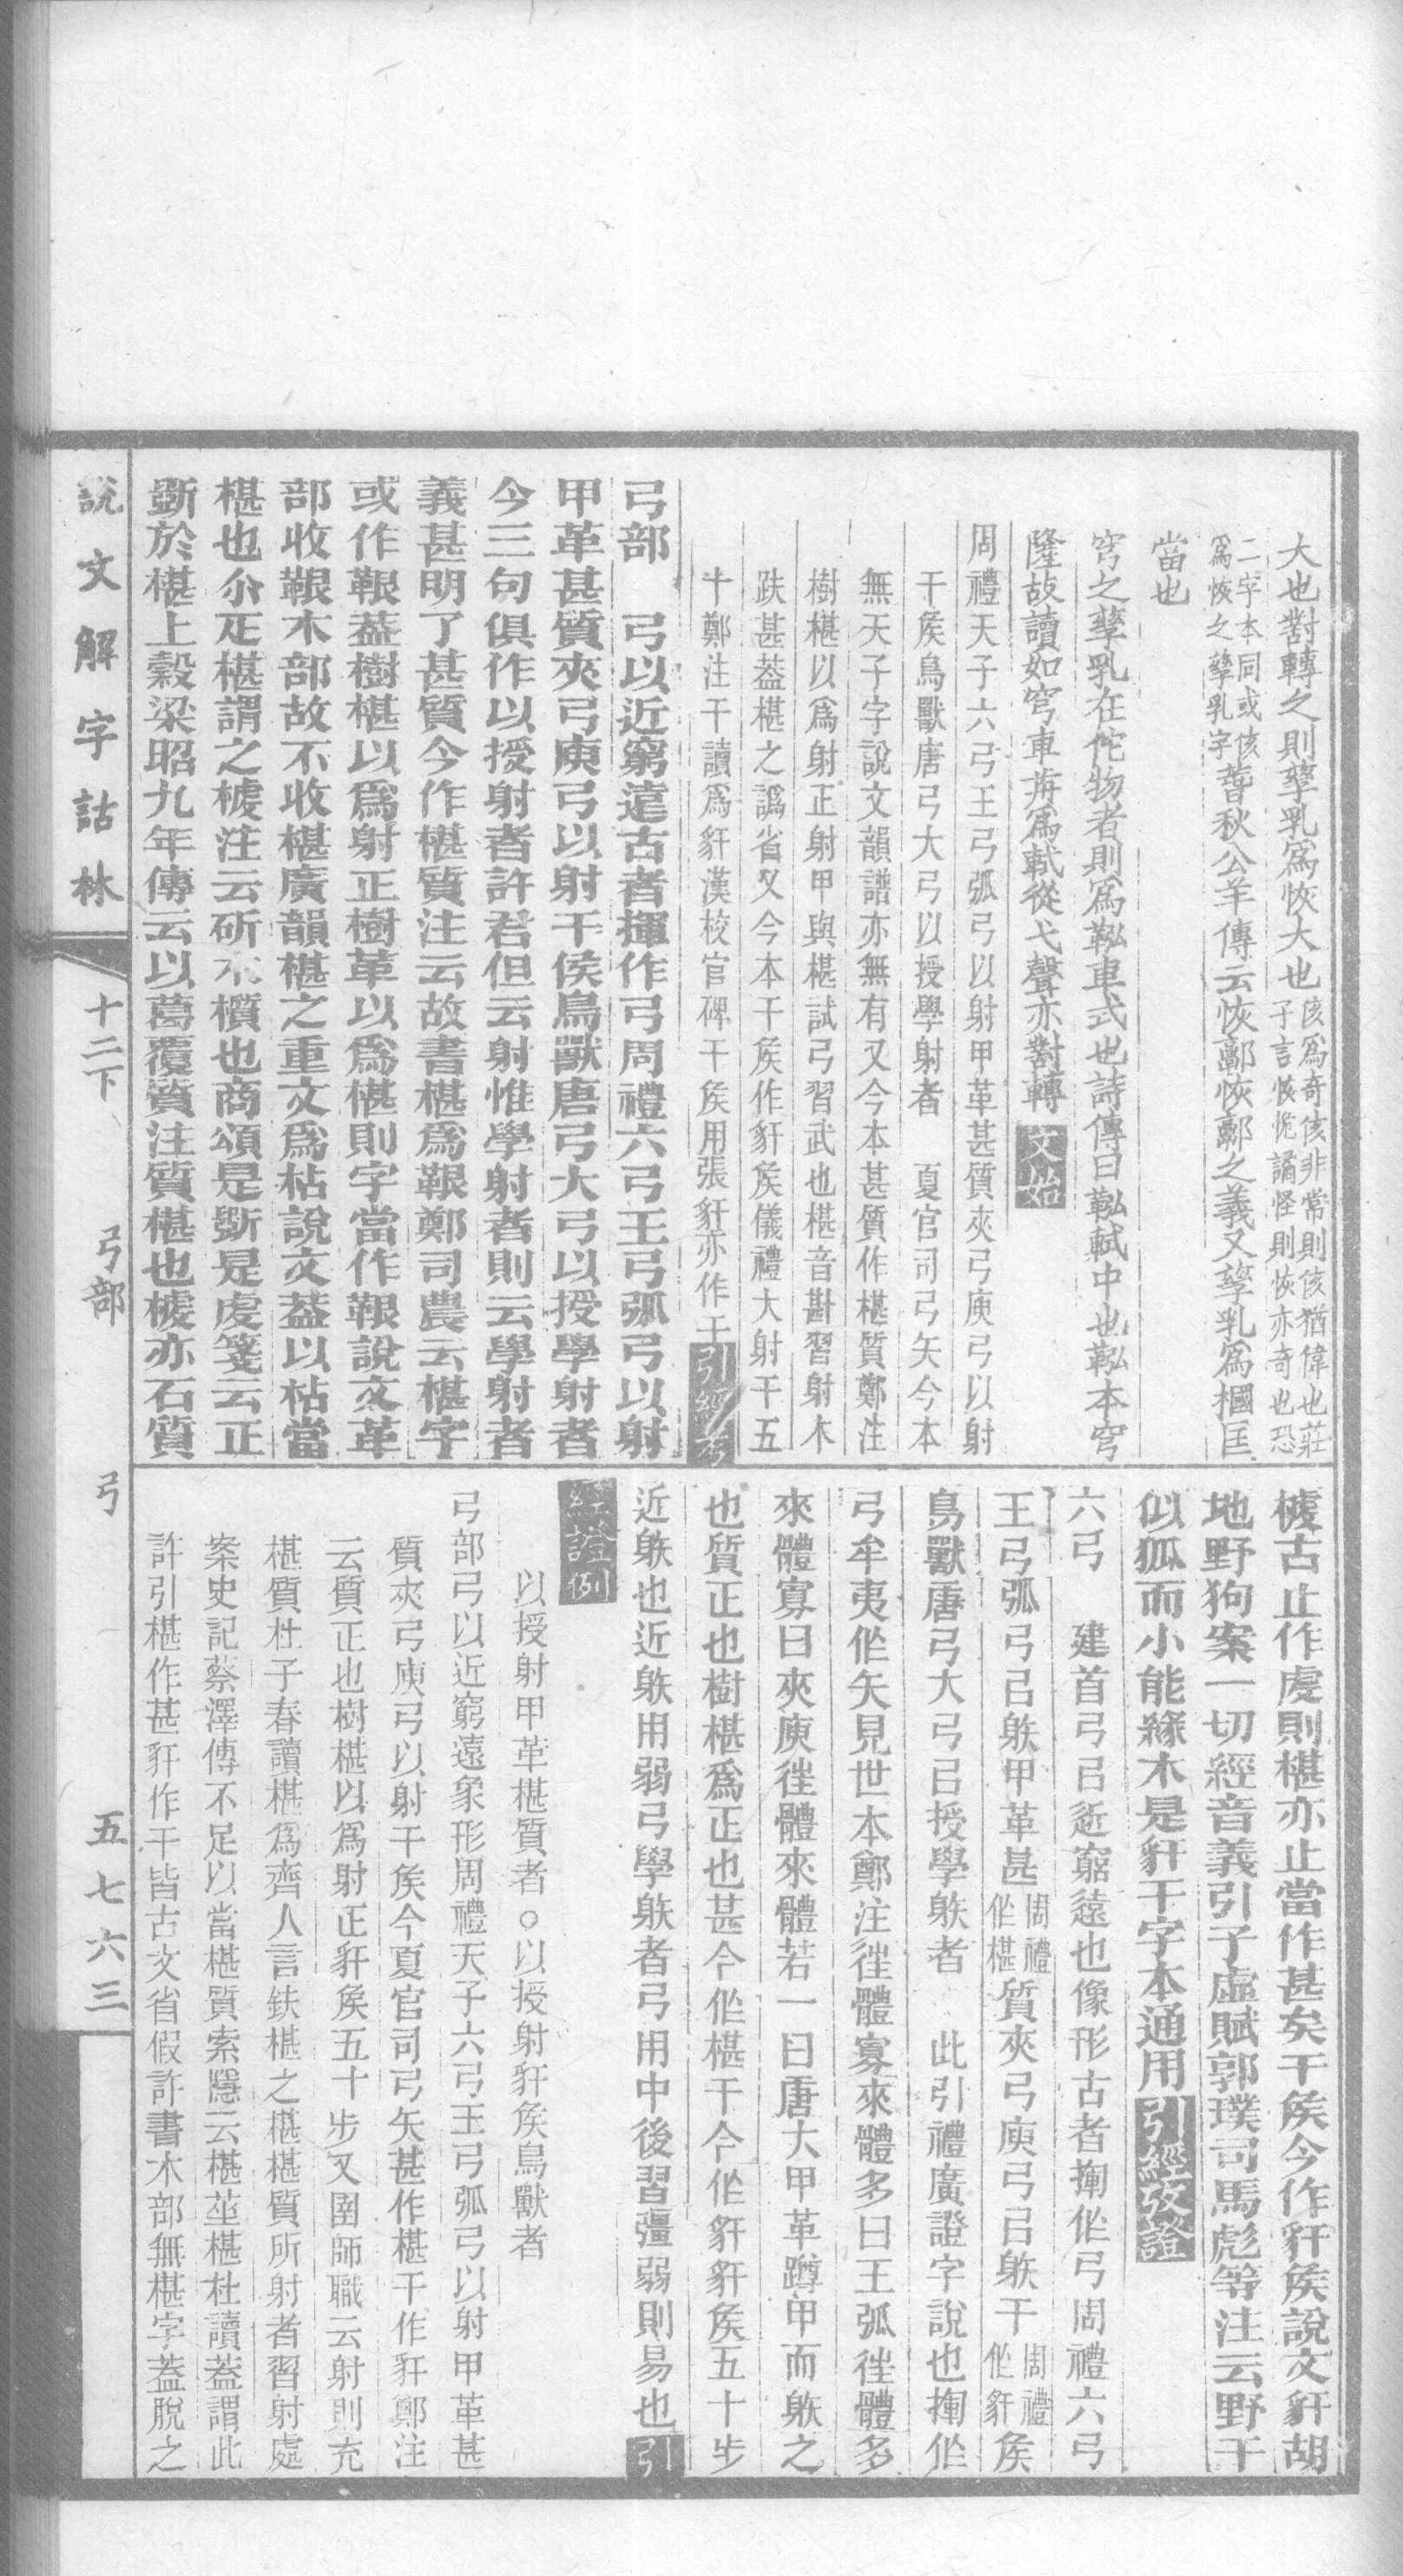 大也對轉之則孳乳爲恢大也侅爲奇侅非常則侅猶偉也莊子言恢恑譎怪則恢亦奇也恐
二字本同或侅爲恢之孳乳字昔秋公羊傳云恢郭恢郭之義又孳乳爲槶匡
當也
穹之孳乳在佗物者則爲鞃車式也詩傳曰鞃軾中也鞃本穹
隆故讀如穹車再爲軾從弋聲亦對轉文始
周禮天子六弓王弓弧弓以射甲革甚質夾弓庾弓以射
干矦鳥獸唐弓大弓以授學射者　夏官司弓矢今本
無天子字說文韻譜亦無有又今本甚質作椹質鄭注
樹椹以爲射正射甲與椹試弓習武也椹音斟習射木
趺甚葢椹之譌省又今本干矦作豻矦儀禮大射干五
十鄭注干讀爲豻漢校官碑干矦用張豻亦作干引經攷
弓部　弓以近窮遠古者揮作弓周禮六弓王弓弧弓以射
甲革甚質夾弓庾弓以射干侯鳥獸唐弓大弓以授學射者
今三句俱作以授射者許君但云射惟學射者則云學射者
義甚明了甚質今作椹質注云故書椹爲鞎鄭司農云椹字
或作鞎葢樹椹以爲射正樹革以爲椹則字當作鞎說文革
部收鞎木部故不收椹廣韻椹之重文爲枮說文葢以枮當
椹也尒疋椹謂之榩注云斫木櫍也商頌是斲是虔箋云正
斲於椹上穀梁昭九年傳云以葛覆質注質椹也榩亦石質
榩古止作虔則椹亦止當作甚矣干矦今作豻矦說文豻胡
地野狗案一切經音義引子虛賦郭璞司馬彪等注云野干
似狐而小能緣木是豻干字本通用引經攷證
六弓　建首弓㠯近窮遠也像形古者揮作弓周禮六弓
王弓弧弓㠯躲甲革甚周禮作椹質夾弓庾弓㠯躲干周禮作豻矦
鳥獸唐弓大弓㠯授學躲者　此引禮廣證字說也揮作
弓牟夷作矢見世本鄭注徃體寡來體多曰王弧徃體多
來體寡曰夾庾徃體來體若一曰唐大甲革蹲甲而躲之
也質正也樹椹爲正也甚今作椹干今作豻豻矦五十步
近躲也近躲用弱弓學躲者弓用中後習彊弱則易也引
經證例
以授射甲革椹質者○以授射豻矦鳥獸者
弓部弓以近窮遠象形周禮天子六弓王弓弧弓以射甲革甚
質夾弓庾弓以射干矦今夏官司弓矢甚作椹干作豻鄭注
云質正也樹椹以爲射正豻矦五十步又圉師職云射則充
椹質杜子春讀椹爲齊人言鈇椹之椹椹質所射者習射處
案史記蔡澤傳不足以當椹質索隱云椹莝椹杜讀葢謂此
許引椹作甚豻作干皆古文省假許書木部無椹字葢脫之
說文解字詁林
十二下　弓部　弓　五七六三